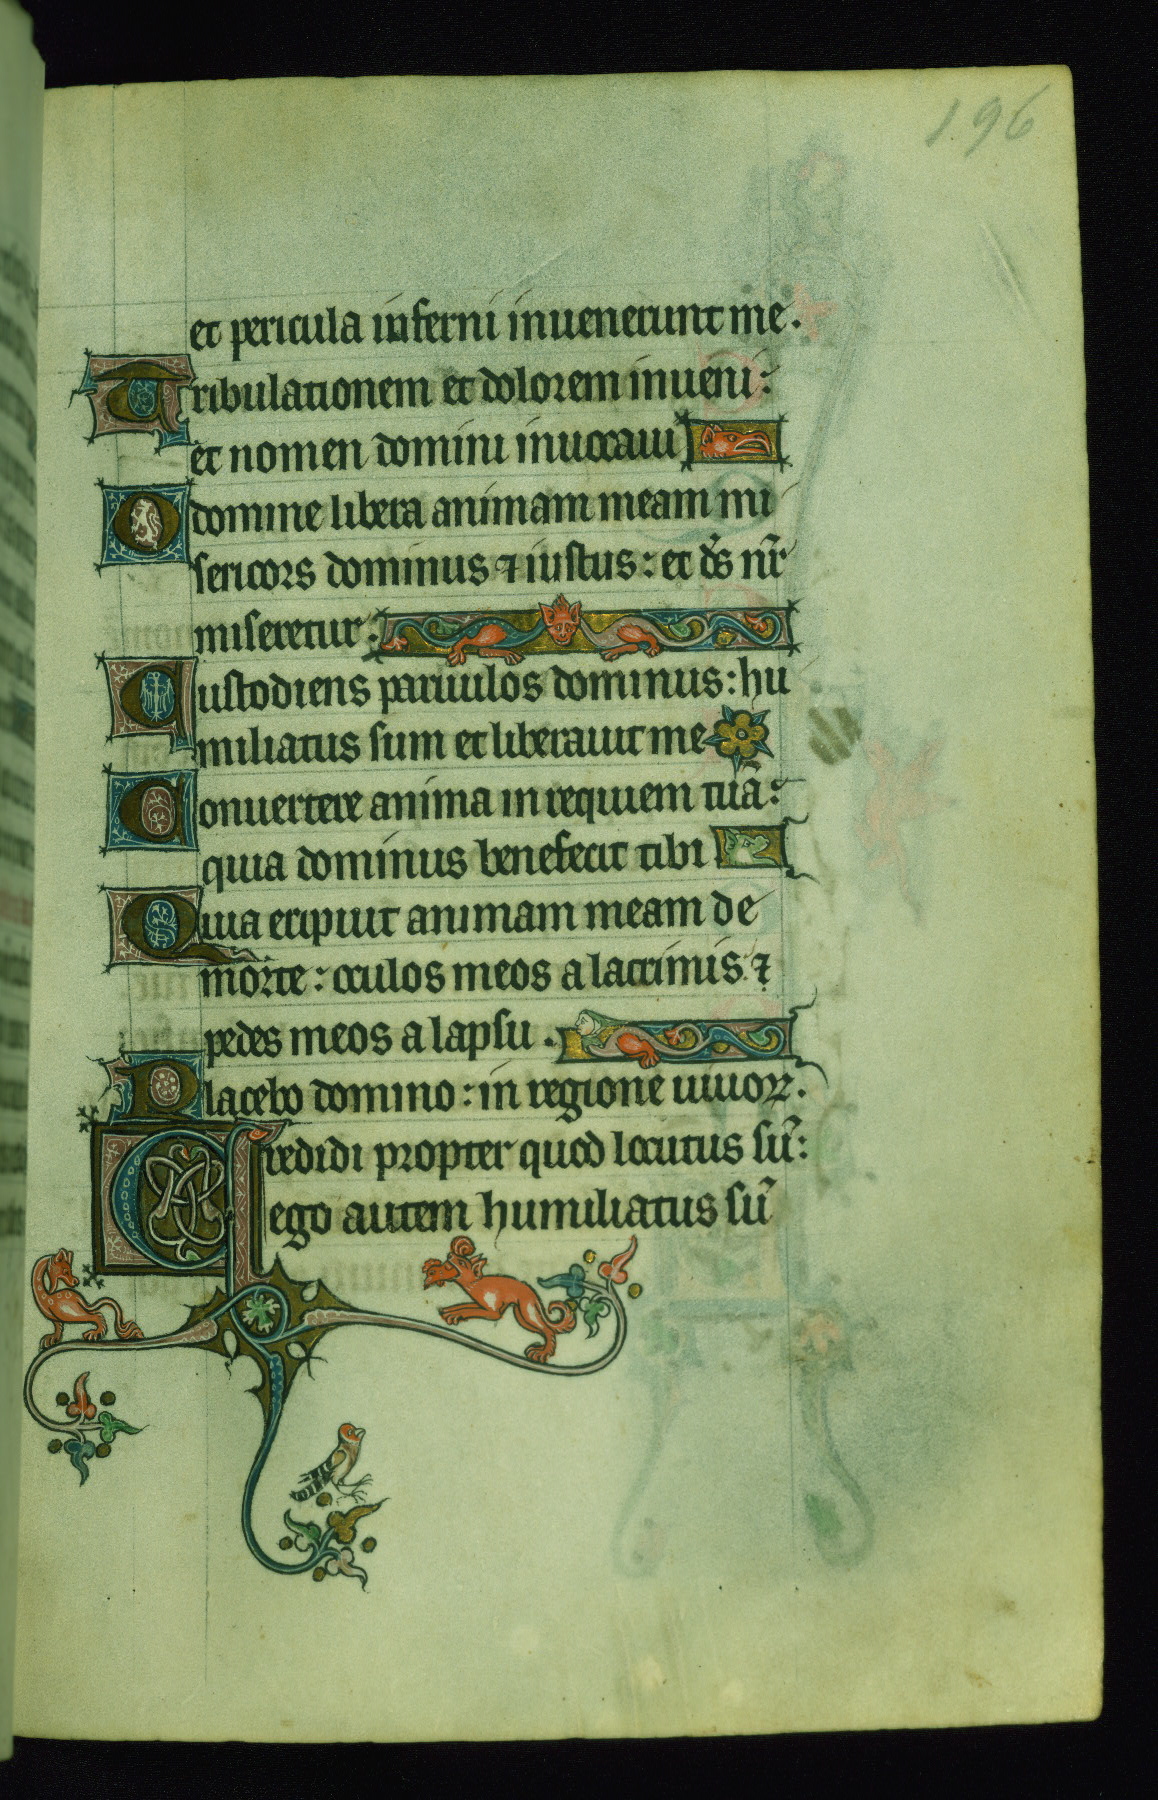 196
et pericula inferni inuenerunt me.
Tribulationem et dolorem inueni:
et nomen domini inuocaui
O domine libera animam meam mi
sericors dominus ⁊ iustus: et ds̄ nr̄
miseretur:
Custodiens paruulos dominus: hu
miliatus sum et liberauit me
Conuertere anima in requiem tuā:
quia dominus benefecit tibi
Quia eripuit animam meam de
morte: oculos meos a lacrimis ⁊
pedes meos a lapsu.
Placebo domino: in regione uiuoꝝ.
Credidi propter quod locutus sū:
ego autem humiliatus sū